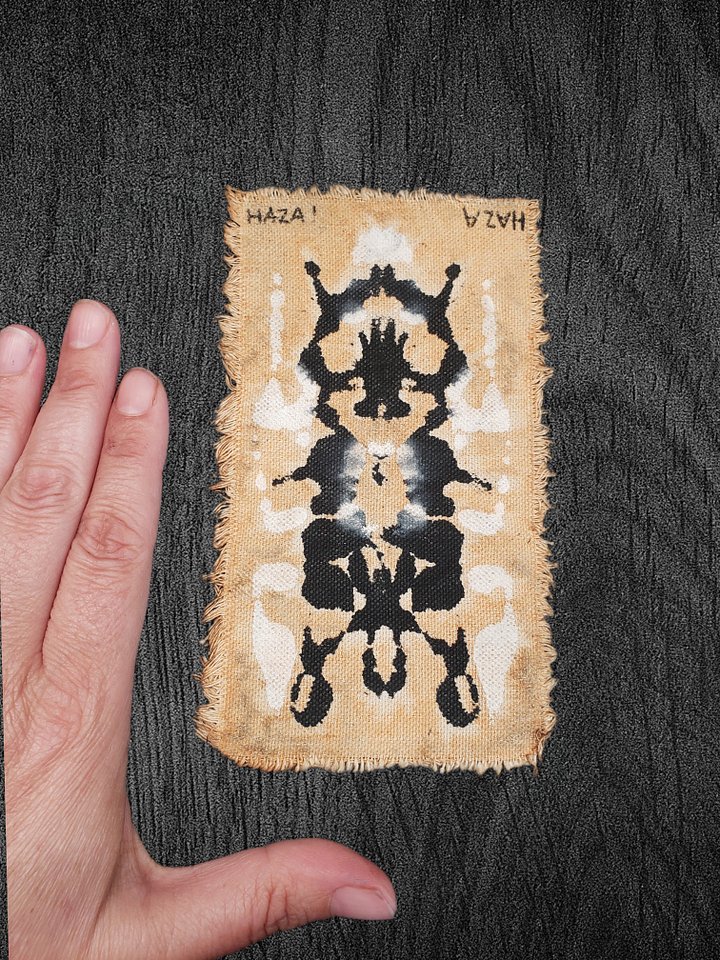 HAZA!
HAZA